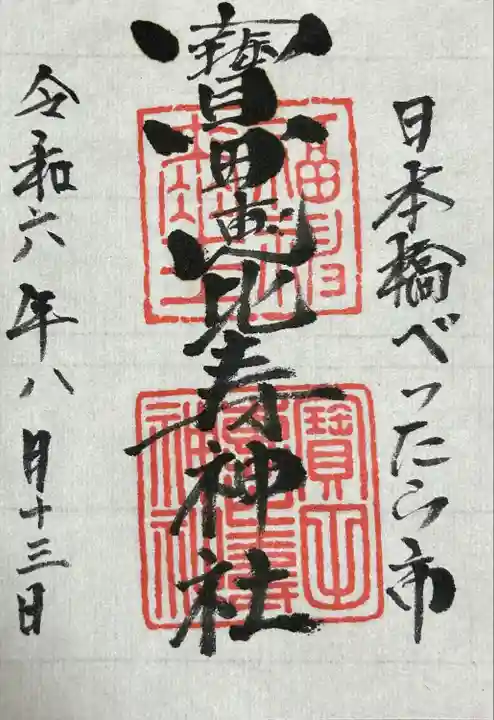 日本橋べったら市
寶田恵比寿神社
令和六年八月十三日